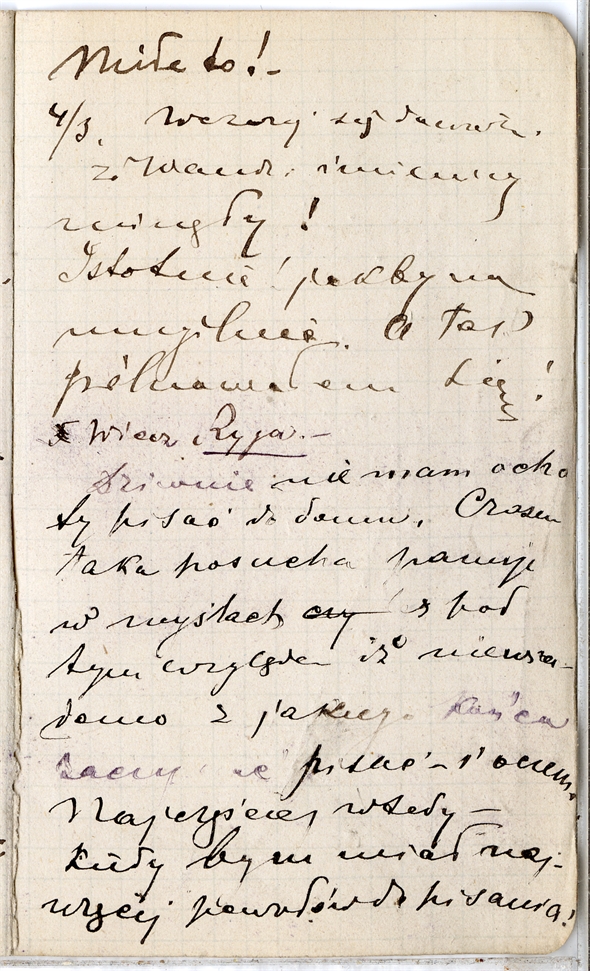 Miłe to! -
4/3. Wczoraj się
z Wand. imieniny
minęły!
Istotnie! jakby na
umyślnie. A tak
pilnowałem się!
x Wiecz Ryga. -
Dziwnie nie mam ocho
ty pisać do domu. Czasem
taka posucha panuje
w myślach czy też pod
tym względem iż niewia-
domo z jakiego końca
zacząć pisać - i o czem.
Najczęściej wtedy -
kiedy bym miał naj-
więcej powodów do pisania!